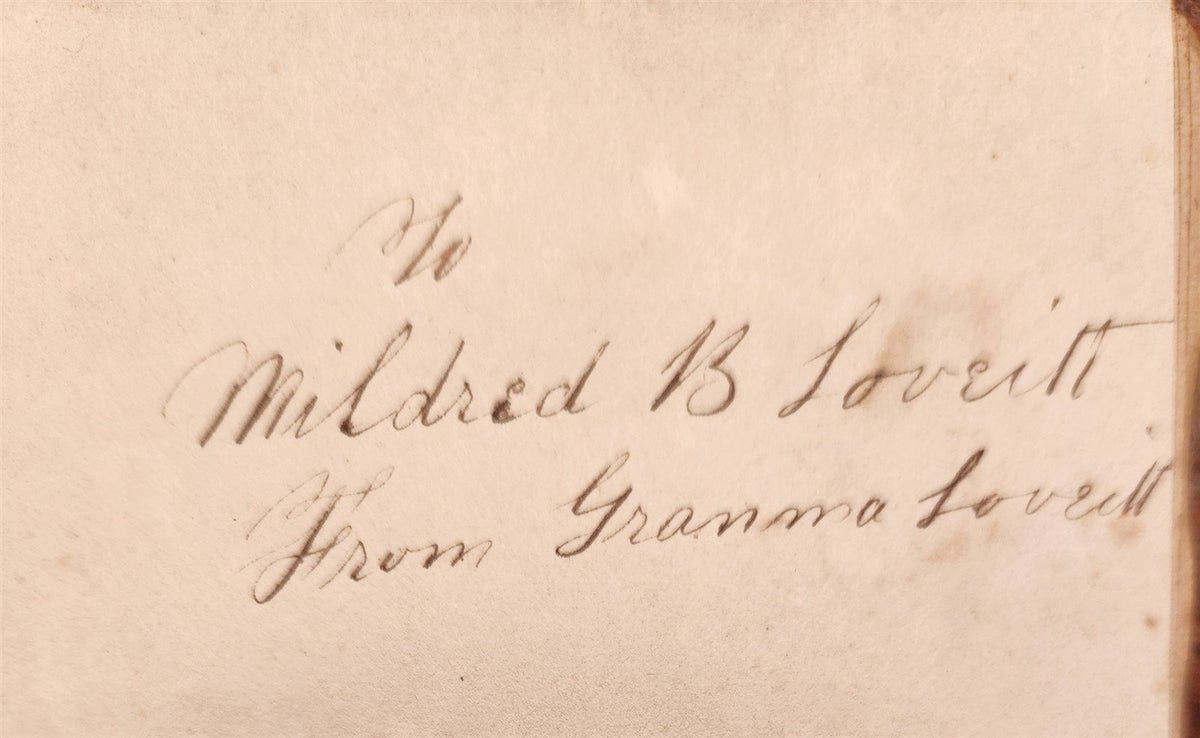 To
Mildred B Loveitt
From Granma Loveitt